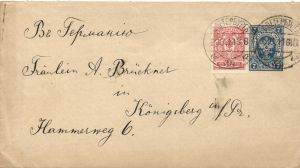 Въ Германію
Fräulein A. Brückner
in
Königsberg in/Pr.
Hammerweg 6.